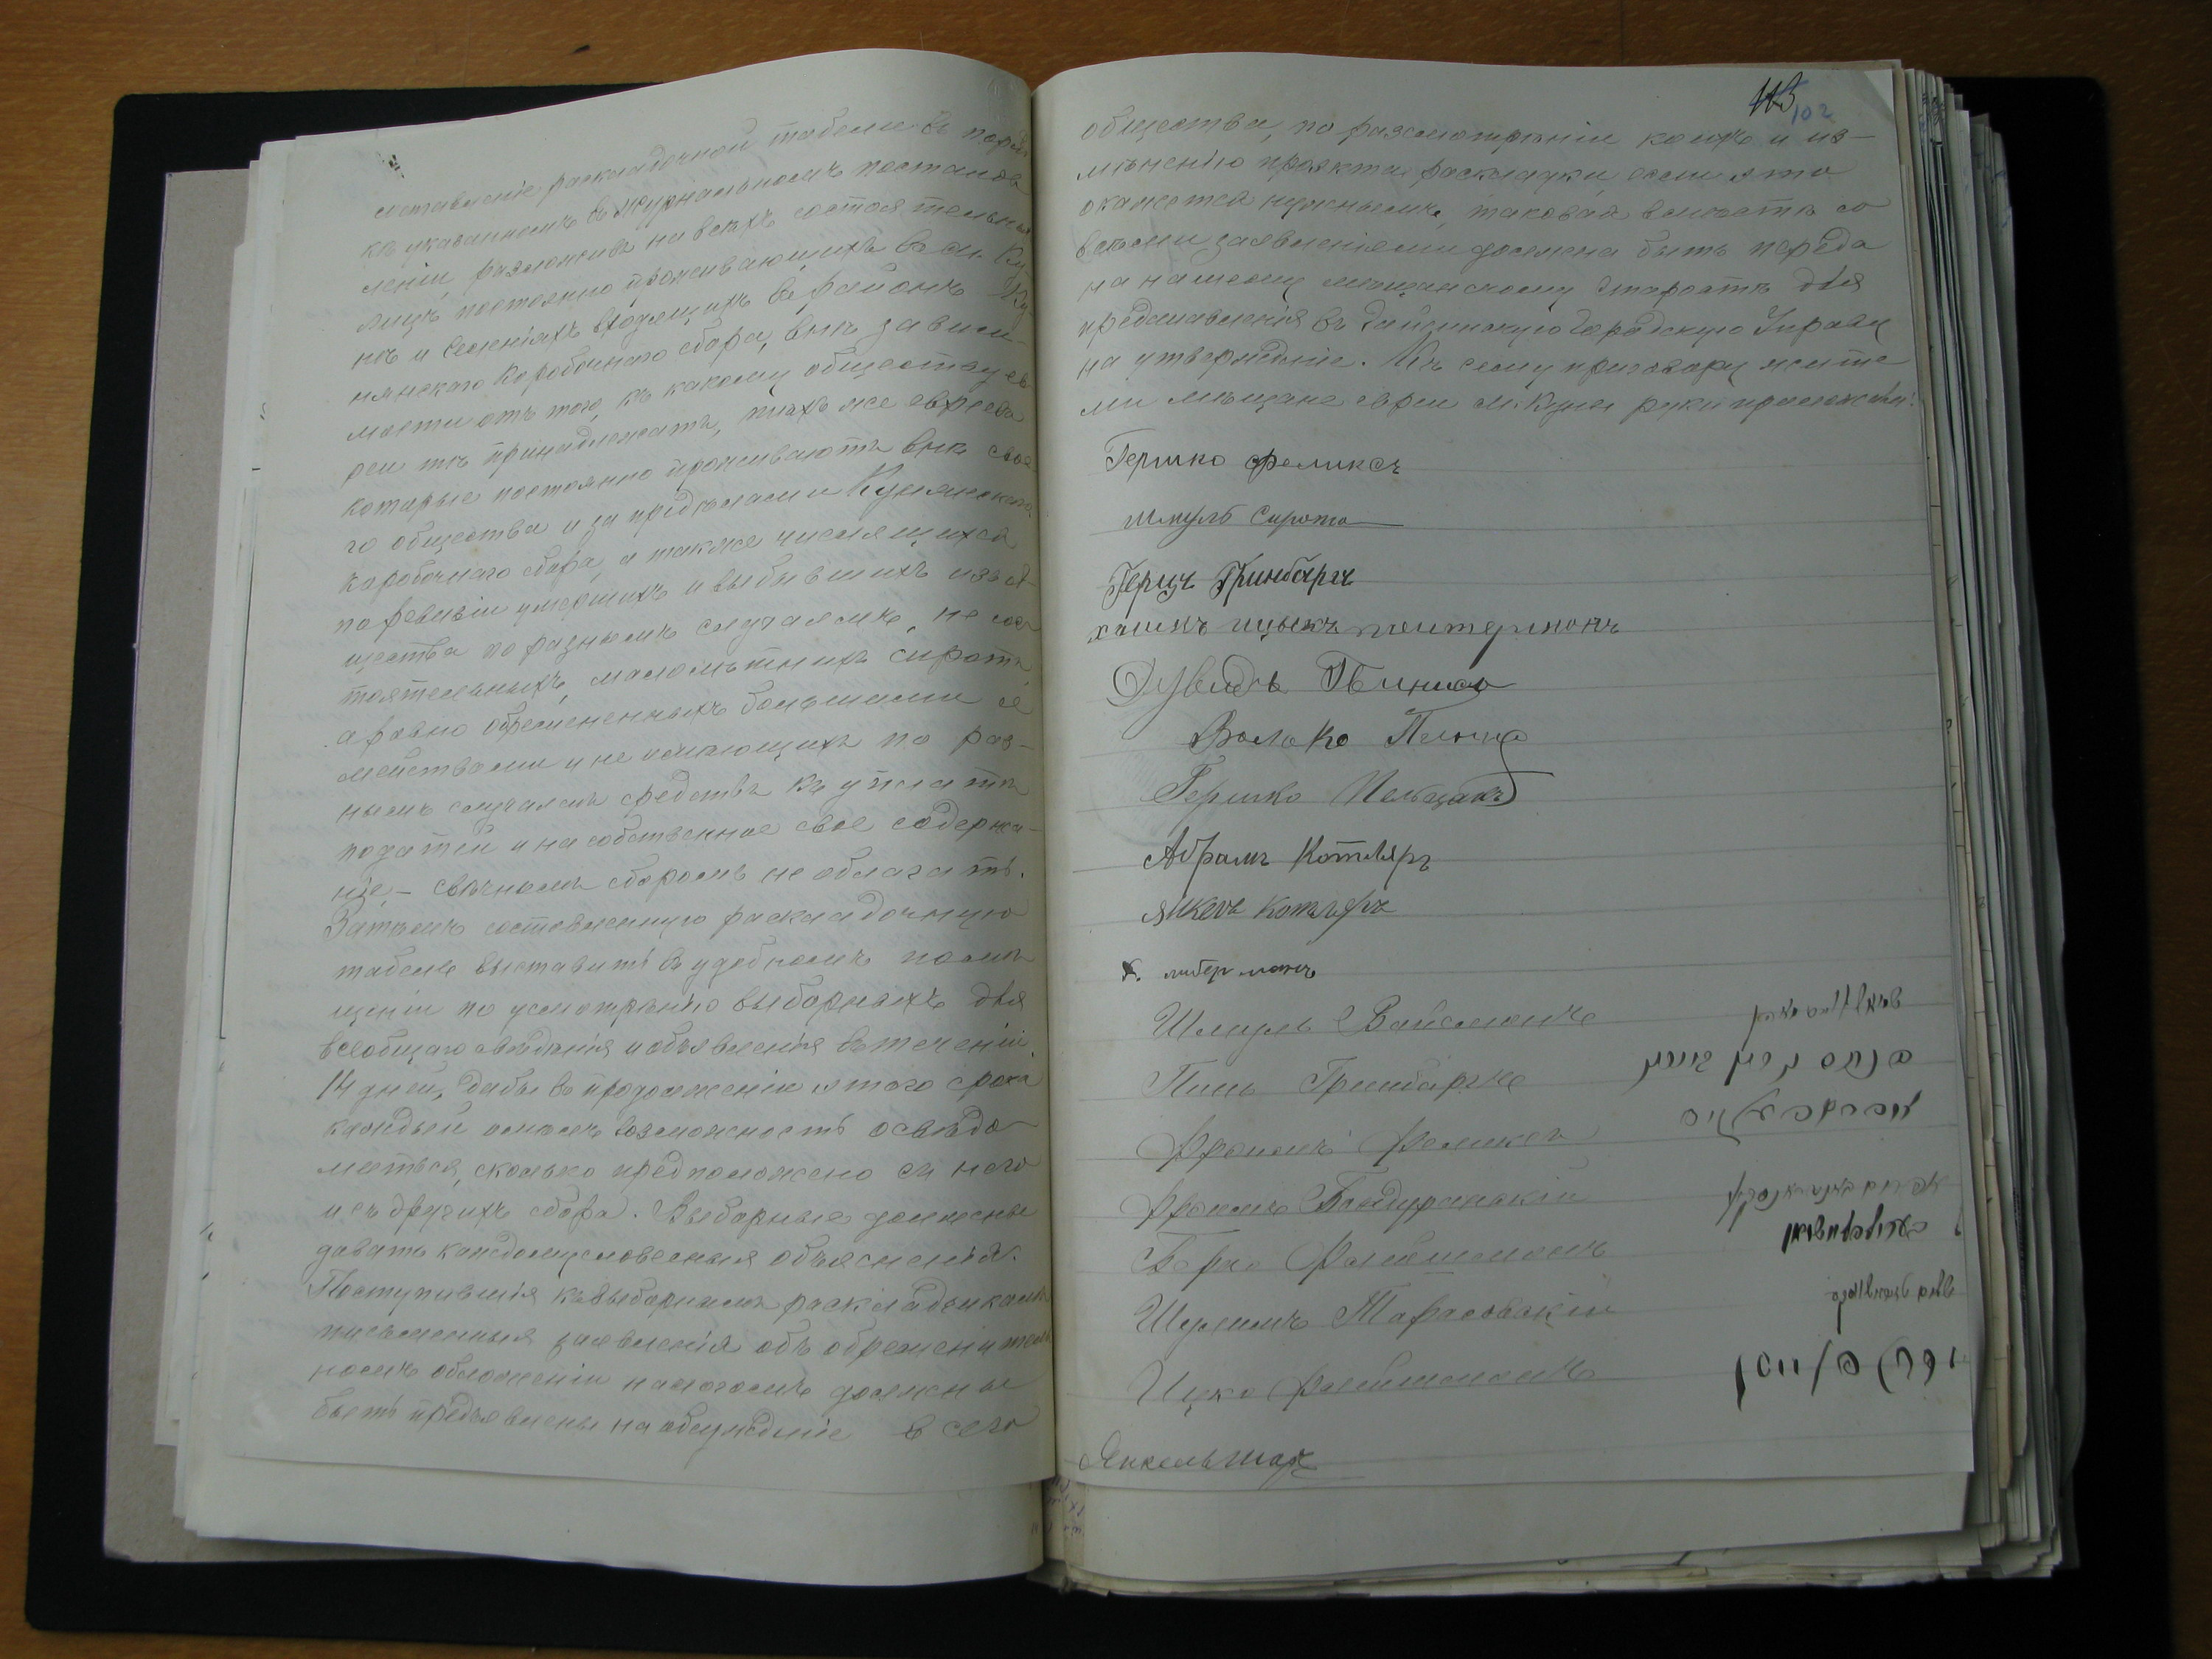 составленіе раскладочной табели въ поряд
кѣ указанномъ въ журнальномъ постанов
леніи, разложивъ на всѣхъ состоятельныхъ
лицъ постоянно проживающихъ въ м. Ку-
нѣ и селеніяхъ входящихъ въ районъ Ку-
нянскаго коробочнаго сбора, внѣ зависи-
мости отъ того, къ какому обществу ев
реи тѣ принадлежатъ, тѣхъ же евреевъ
которые постоянно проживаютъ внѣ свое
го общества и за предѣлами Кунянскаго
коробочнаго сбора, а также числящихся
по ревизіи умершихъ и выбывшихъ изъ об
щества по разнымъ случаямъ, не сос
тоятельныхъ, малолѣтнихъ сиротъ,
а равно обремененныхъ большими се
мействами и не имѣющихъ по раз-
нымъ случаямъ средствъ къ уплатѣ
податей и на собственное свое содержа-
ніе, – свѣчнымъ сборомъ не облагать.
Затѣмъ составленную раскладочную
табель выставить въ удобномъ помѣ
щеніи по усмотрѣнію выборныхъ для
всеобщаго свѣдѣнія и объявленія въ теченіи
14 дней, дабы въ продолженіи этого срока
каждый имѣлъ возможность освѣдо
миться, сколько предположено съ него
и съ другихъ сбора. Выборные должны
давать каждому словесныя объясненія.
Поступившія къ выборнымъ раскладчикамъ
письменныя заявленія объ обременитель
номъ обложеніи налогомъ должны
быть предъявлены на обсужденіе всего
113 102
общества, по разсмотрѣніи коихъ и из-
мѣненію проэкта раскладки, если это
окажется нужнымъ, таковая вмѣстѣ со
всѣми заявленіями должна быть переда
на нашему мѣщанскому Старостѣ для
представленія въ Гайсинскую Городскую Управу
на утвержденіе. Къ сему приговору жите
ли мѣщане евреи м. Куны руки приложили:
Гершко Феликсъ
Шмуль Сирота
Герцъ Гринбергъ
Хаимъ Ицыкъ
Дувидъ
Волько
Гершко
Абрамъ Котляръ
Янкель Котляръ
Х. Либерманъ
Шмуль Вайсманъ
Пинь Гринбергъ
Фроимъ Феликсъ
Фроимъ Бандурянскій
Берко Флейшманъ
Шулимъ Тарасовскій
Ицко Флейшманъ
Янкель Шар